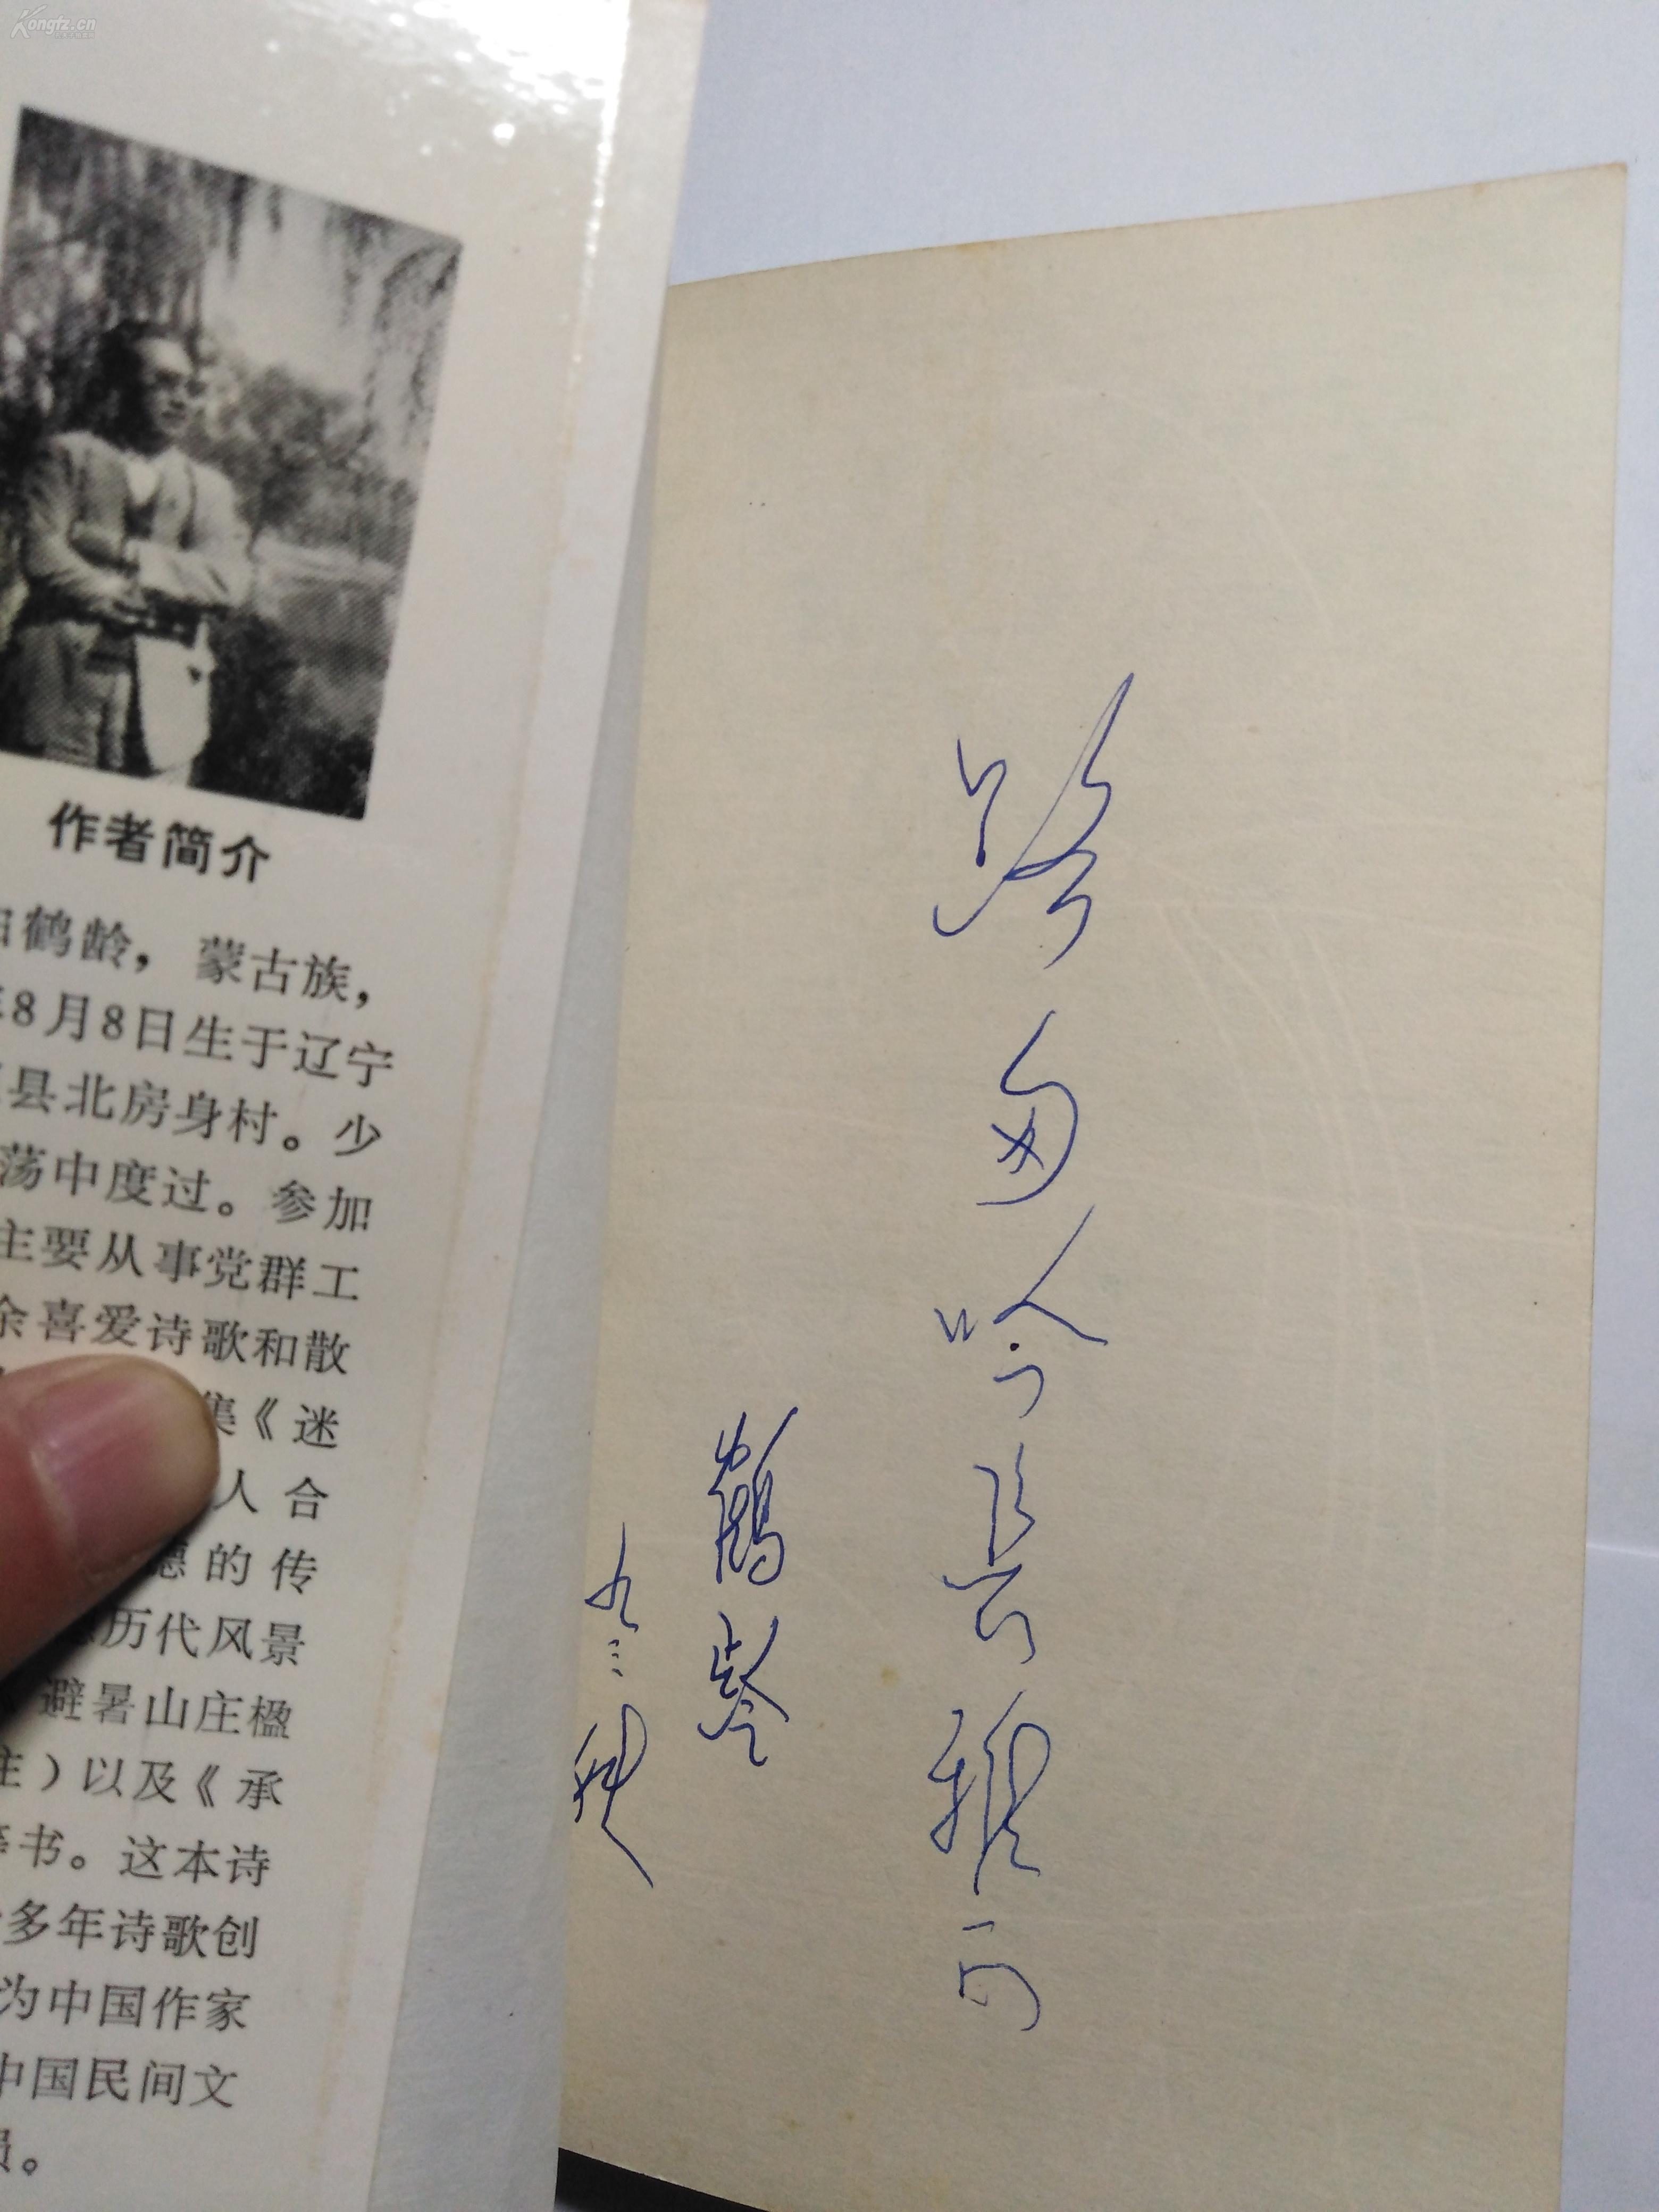 Kongfz.cn
作者简介
鹤龄，蒙古族，
8月8日生于辽宁
县北房身村。少
荡中度过。参加
主要从事党群工
余喜爱诗歌和散
集《迷
人合
德的传
历代风景
避暑山庄楹
注）以及《承
等书。这本诗
多年诗歌创
为中国作家
中国民间文
员。
吟长雅正
鹤龄
九三 秋